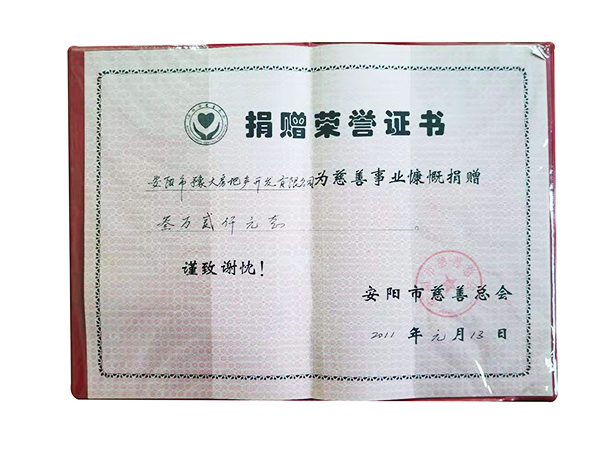 捐赠荣誉证书
安阳市豫大房地产开发有限公司为慈善事业慷慨捐赠
叁万贰仟元整。
谨致谢忱！
安阳市慈善总会
2011年元月13日